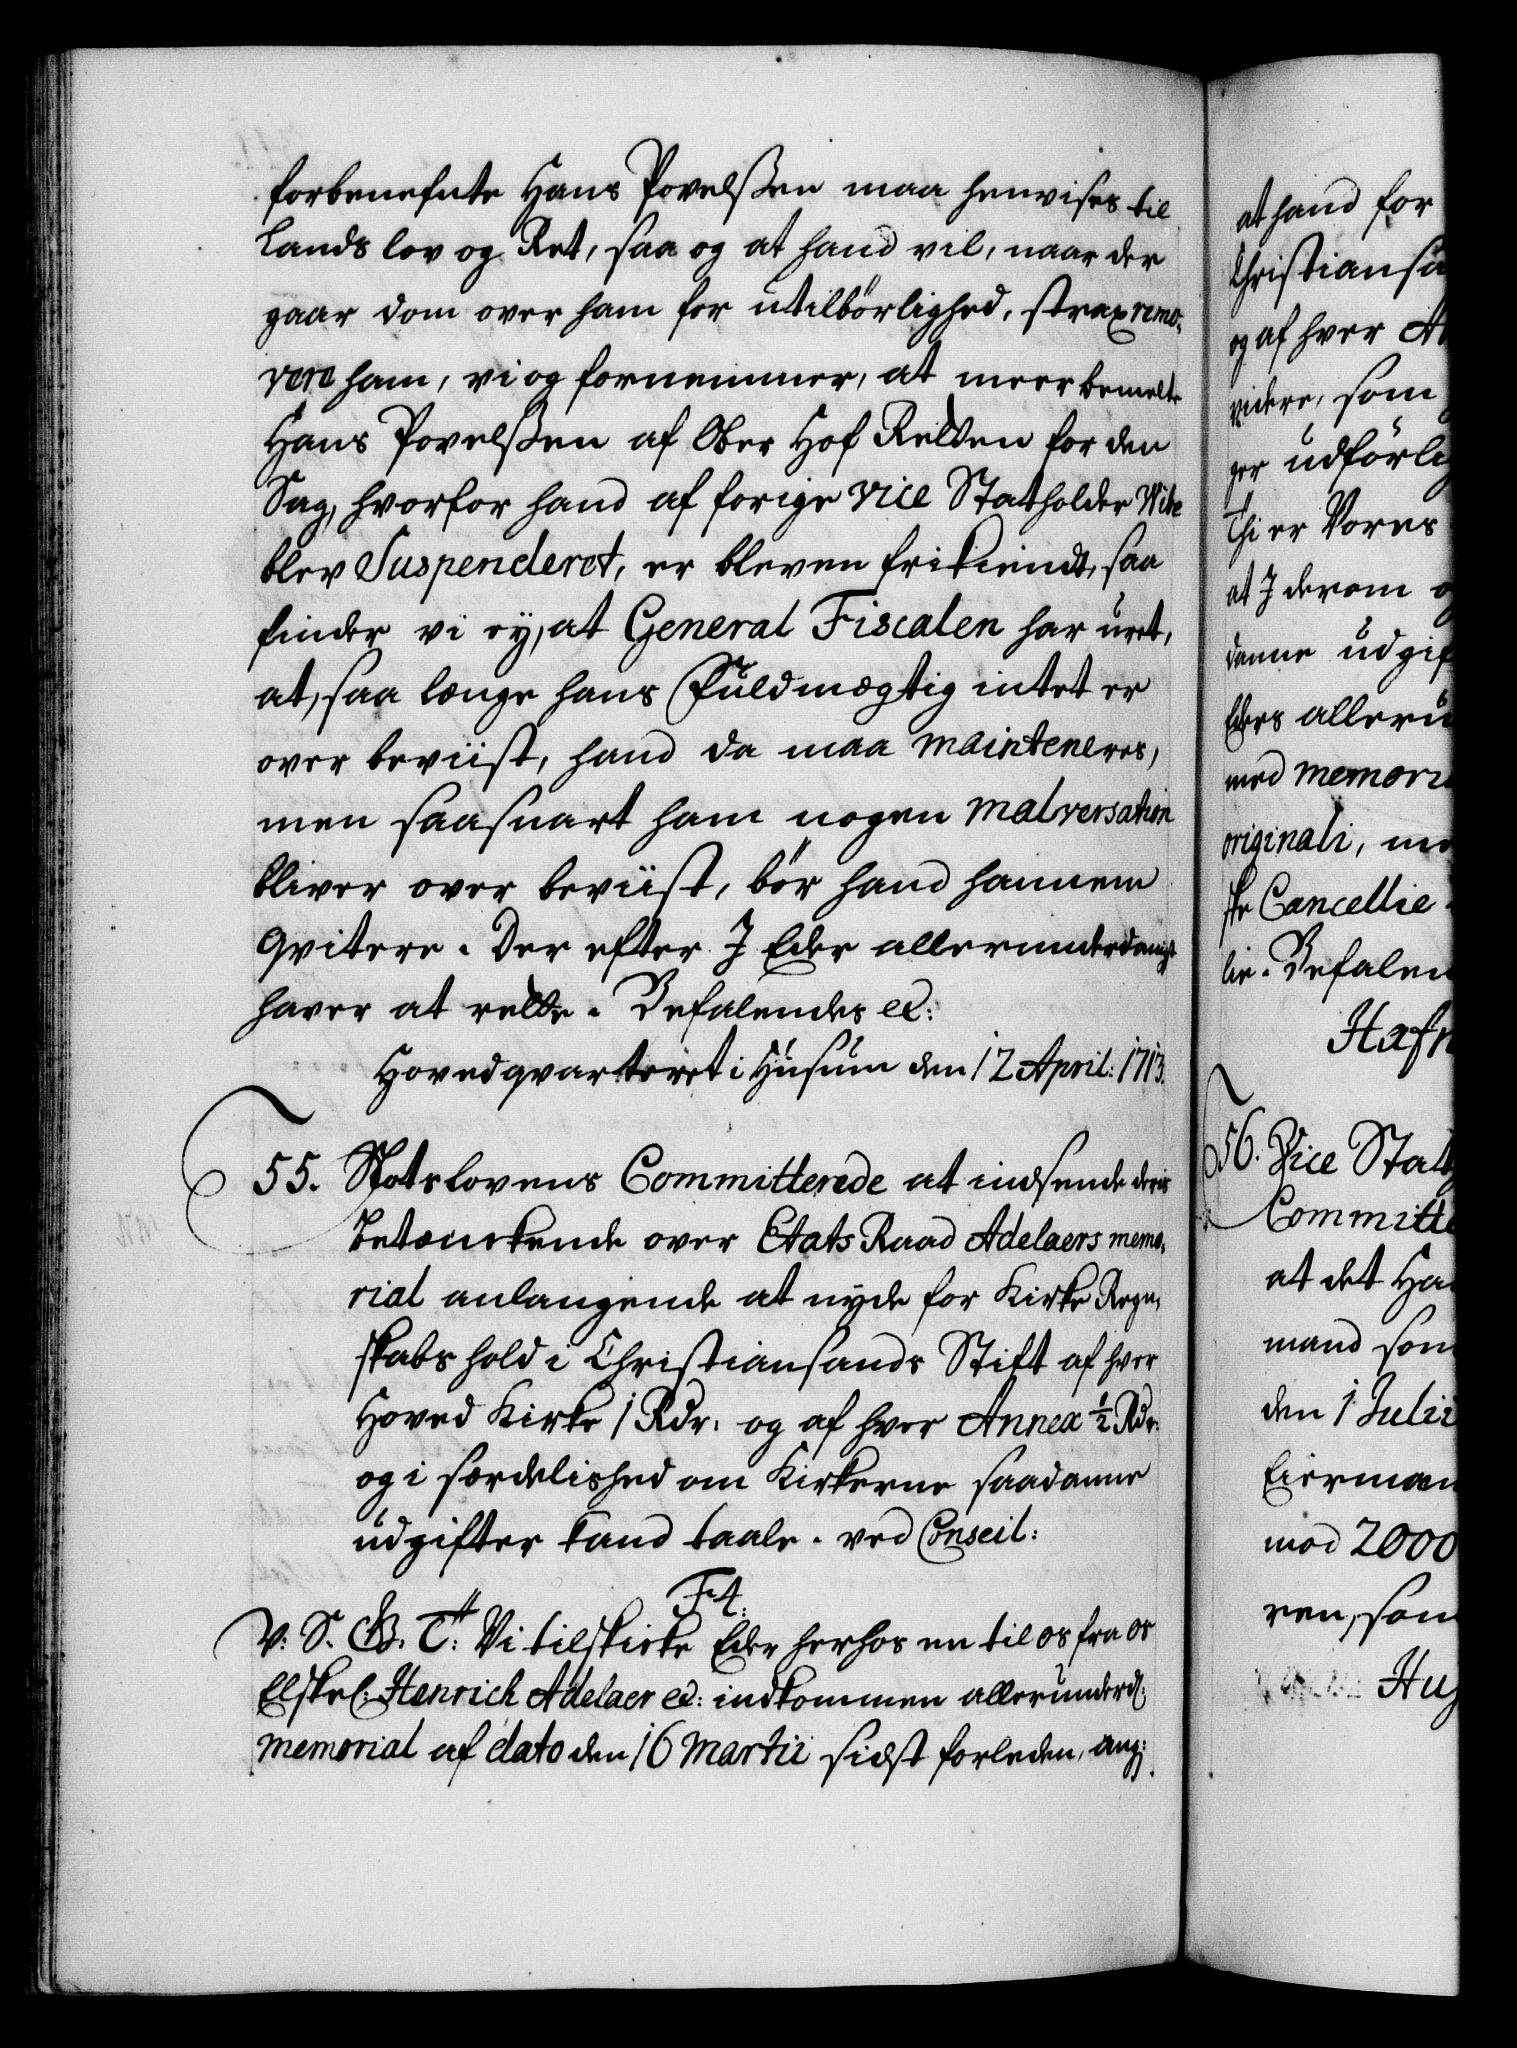 forbenefnte Hans Povelssen maa henvises til
Lands lov og Ret, saa og at hand vil, naar der
gaar dom over ham for utilbørlighed, strax remo,
vere ham, vi og fornemmer, at meerbemelte
Hans Povelssen af Ober Hof Retten for den
Sag, hvorfor hand af forige Vice Statholder Wibe
blev Suspenderet, er bleven frikiendt, saa
finder vi ey, at General Fiscalen har uret,
at, saa længe hans Fuldmægtig intet er
over beviist, hand da maa mainteneres,
men saasnart ham nogen malversation
bliver over beviist, bør hand hannem
qvitere. Der efter I Eder allerunderdanigst
haver at rette. Befalendes etc:
Hovedqvarteret i Husum den 12 April: 1713.
55. Slotslovens Committerede at indsende deris
Betænckende over Etats Raad Adelaers memo,
rial anlangende at nyde for Kirke Regn,
skabs hold i Christiansands Stift af hver
Hoved Kirke 1 Rdr: og af hver Annex ½ Rdr:
og i særdelished om Kirkerne saadanne
udgifter kand taale. ved Conseil:
F4.
V: S. G. T: Vi tilskicke Eder herhos en til os fra os
Elskel: Henrich Adelaer etc: indkommen allerunderd:
memorial af dato den 16 Martii sidst forleden, ang:
at hand for
Christiansa
og af hver An
videre, som
ger udførlig
Thi er Vores
at I derom o
danne udgif
Eders alleru
med memori
originali, me
ske Cancellie
lie. Befalen
Hafn
56. Vice Stath
Committe
at det Ha
mand som
den 1 Julii
Eierman
mod 2000
ren, som
Hu